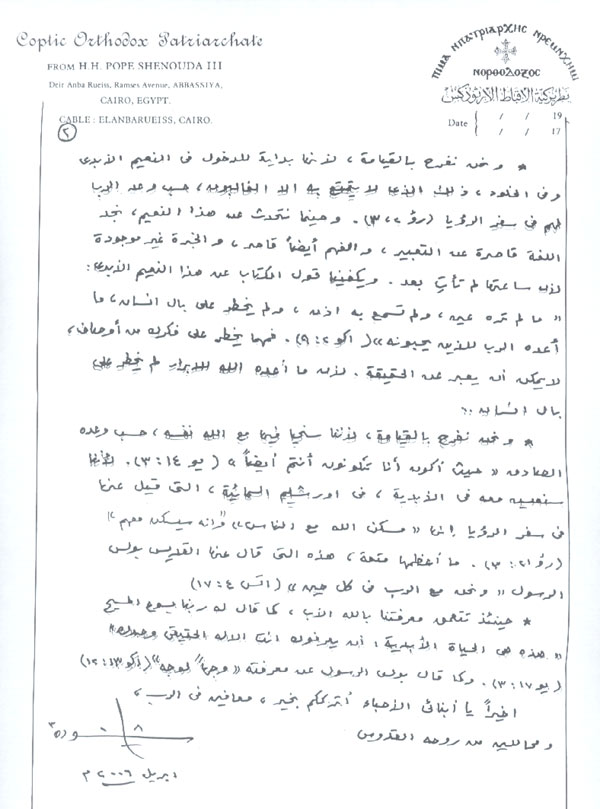 Coptic Orthodox Patriarchate
FROM H.H. POPE SHENOUDA III
Deir Anba Rueiss, Ramses Avenue, ABBASSIYA,
CAIRO, EGYPT.
CABLE : ELANBARUEISS, CAIRO.
ⲚⲞⲢⲐⲞⲆⲞⲜⲞⲤ
بطريركية الأقباط الأرثوذكس
Date / / 19
/ / 17
٢
* ونحن نفرح بالقيامة، لأنها بداية للدخول فى النعيم الأبدى
وفى الخلود، ذلك الذى لا يتمتع به إلا الغالبون، حسب وعد الرب
لهم فى سفر الرؤيا (رؤ ٢، ٣). وحينما نتحدث عن هذا النعيم، نجد
اللغة قاصرة عن التعبير، والفهم أيضاً قاصر، والخبرة غير موجودة
لأن ساعتها لم تأتِ بعد. ويكفينا قول الكتاب عن هذا النعيم الأبدى:
"ما لم تره عين، ولم تسمع به أذن، ولم يخطر على بال إنسان، ما
أعده الرب للذين يحبونه" (١كو ٢: ٩). فمهما يخطر على فكرك من أوصاف،
لا يمكن أن يعبر عن الحقيقة. لأن ما أعده الله للأبرار لم يخطر على
بال إنسان..
* ونحن نفرح بالقيامة، لأننا سنحيا فيها مع الله نفسه، حسب وعده
الصادق "حيث أكون أنا تكونون أنتم أيضاً" (يو ١٤: ٣). لأننا
سنعيش معه فى الأبدية، فى أورشليم السمائية، التى قيل عنها
فى سفر الرؤيا إنها "مسكن الله مع الناس" "وأنه سيسكن معهم"
(رؤ ٢١: ٣). ما أعظمها متعة، هذه التى قال عنها القديس بولس
الرسول "ونكون مع الرب فى كل حين" (١تس ٤: ١٧)
* حينئذ تتعمق معرفتنا بالله الآب، كما قال له ربنا يسوع المسيح
"هذه هى الحياة الأبدية: أن يعرفوك أنت الإله الحقيقى وحدك"
(يو ١٧: ٣). وكما قال بولس الرسول عن معرفته "وجهاً لوجه" (١كو ١٣: ١٢)
أخيراً يا أبنائى الأحباء أترككم بخير، معافين فى الرب،
ومحاللين من روحه القدوس
إبريل ٢٠٠٦ م